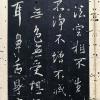 法空相不生
不淨不增不減
無色無受想
耳鼻舌身